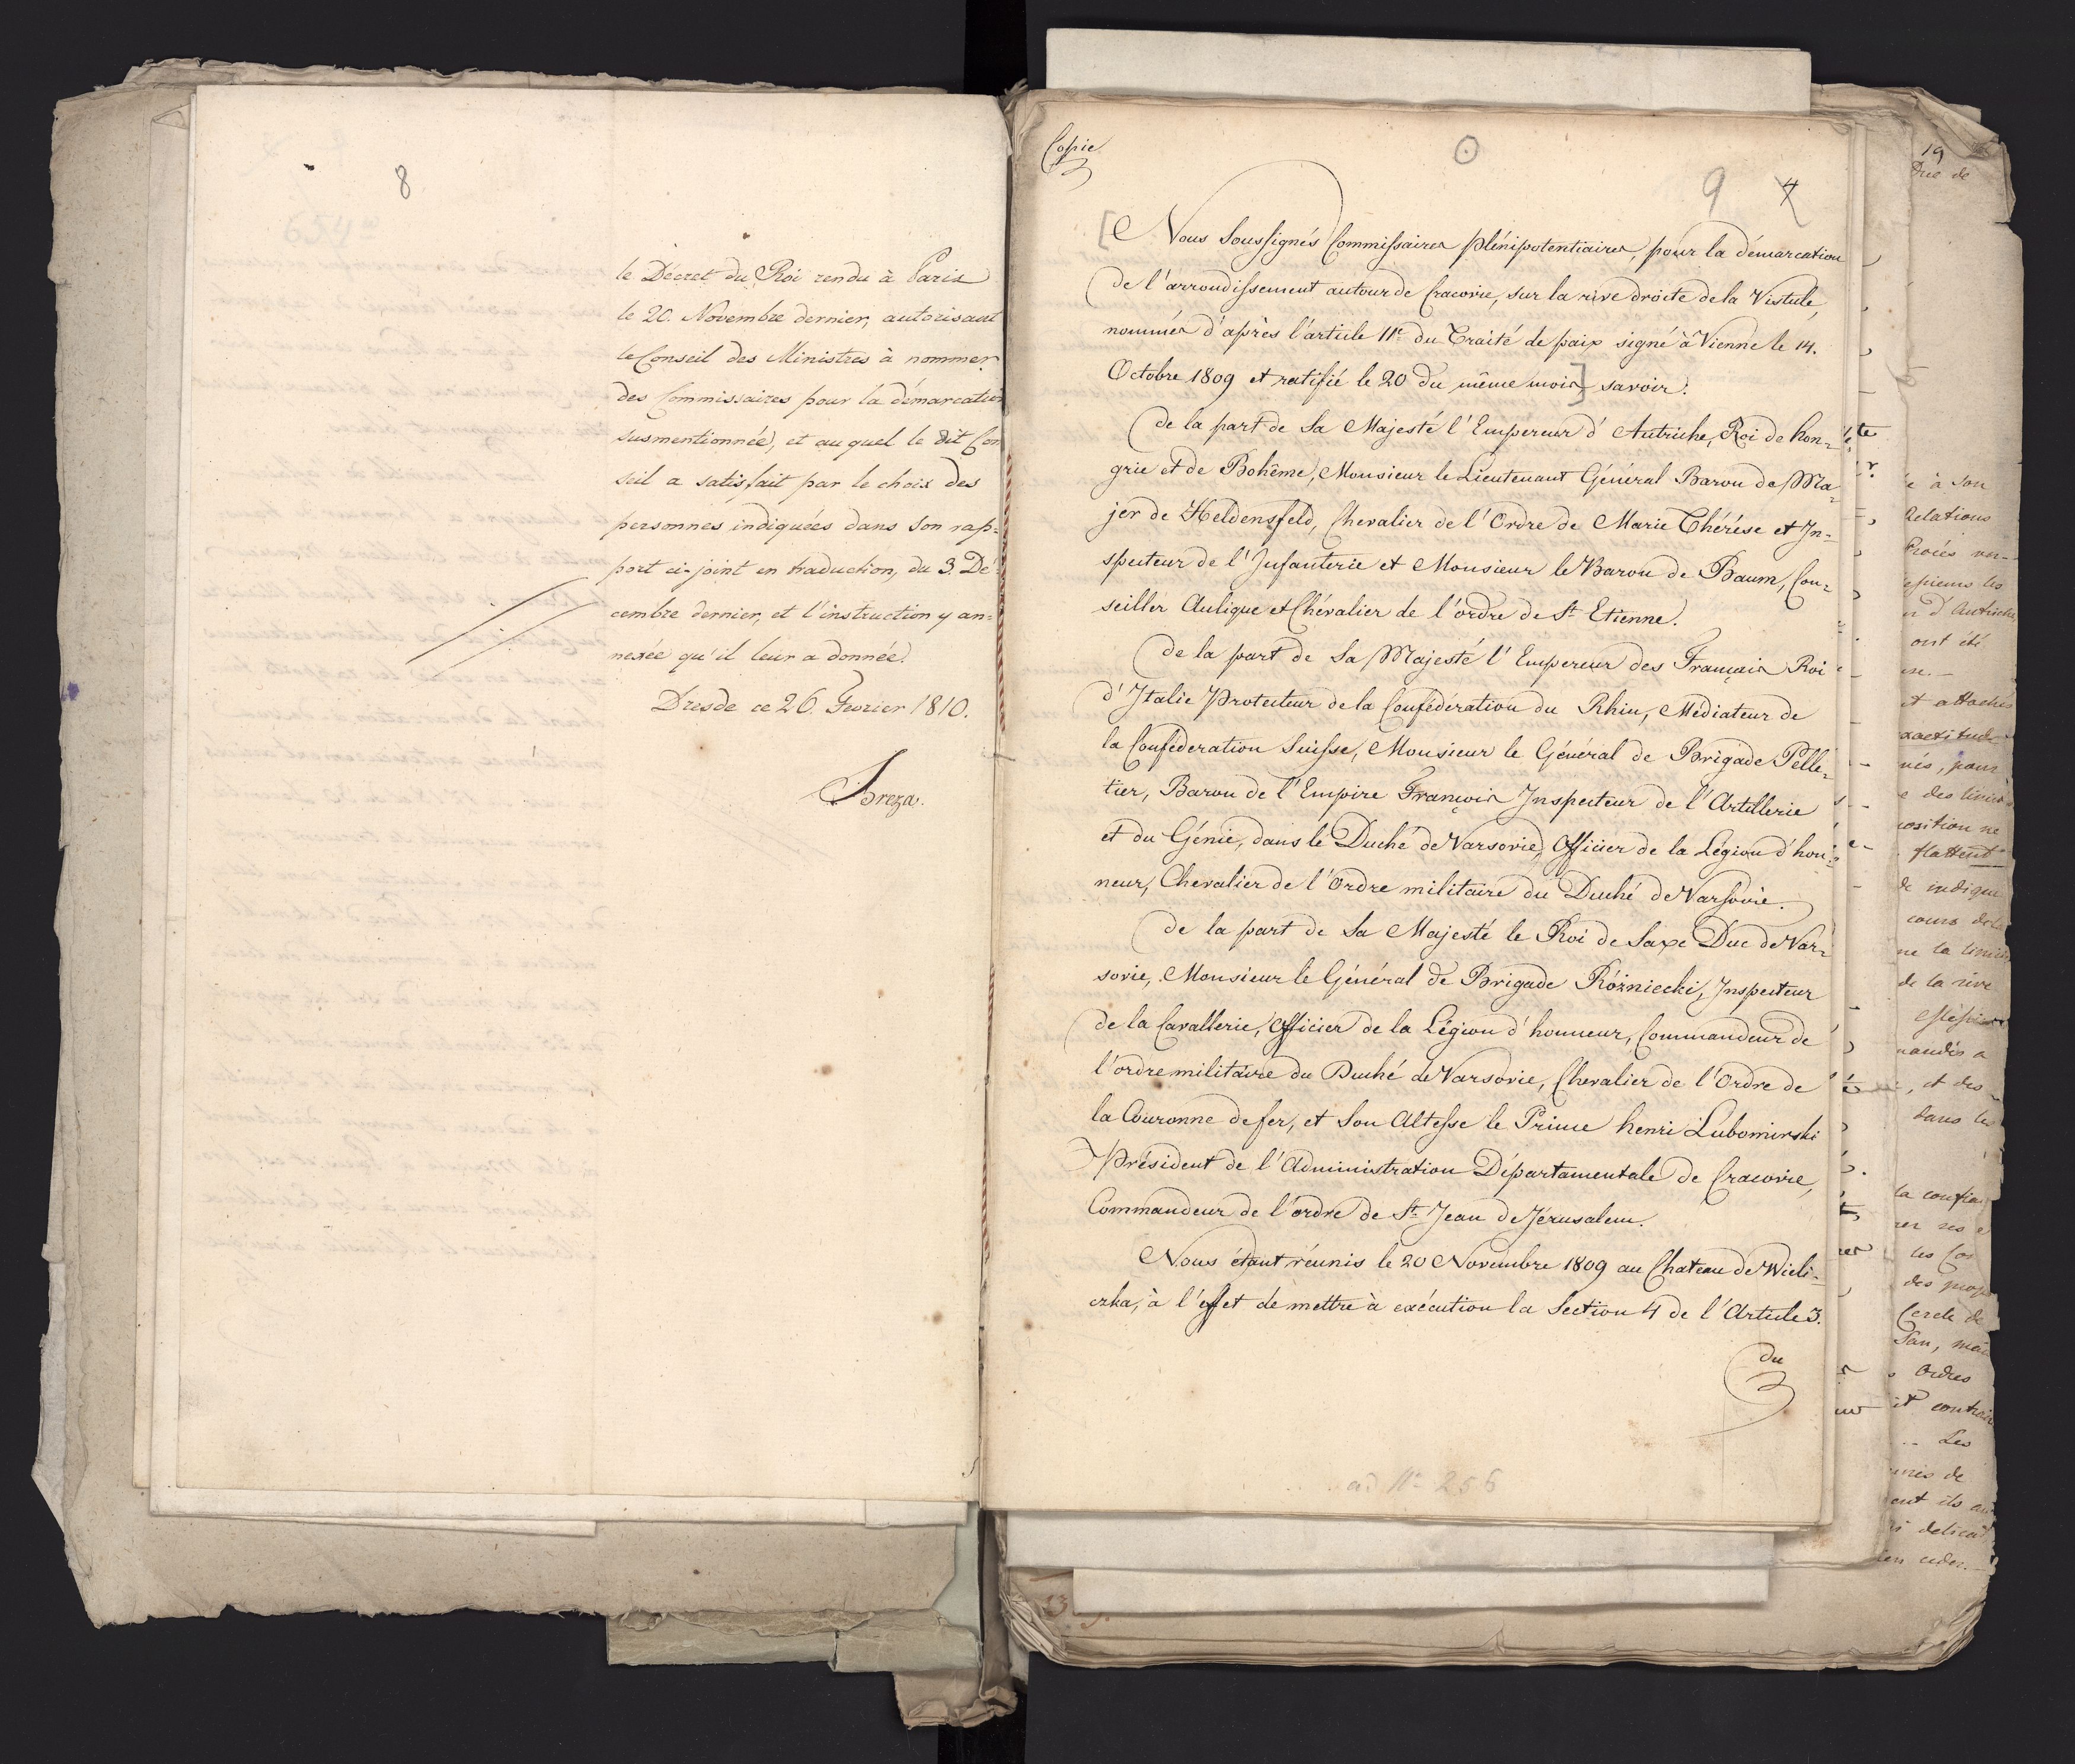 8
le Décret du Roi rendu à Paris
le 20. Novembre dernier, autorisant
le Conseil des Ministres à nommer
des Commissaires pour la démarcation
susmentionnée, et auquel le dit Con
seil a satisfait par le choix des
personnes indiquées dans son rap=
port ci-joint en traduction, du 3. Dé=
cembre dernier, et l'instruction y an=
nexée qu'il leur a donnée.
Dresde ce 26. Fevrier 1810.
Breza.
Copie
9 4
[Nous Soussignés Commissaires plénipotentiaires, pour la démarcation
de l'arrondissement autour de Cracovie, sur la rive droite de la Vistule,
nommés d'après l'article 11e du Traité de paix signé à Vienne le 14.
Octobre 1809 et ratifié le 20 du même mois] savoir:
de la part de Sa Majesté l'Empereur d'Autriche, Roi de hon=
grie et de Bohême, Monsieur le Lieutenant Général Baron de Ma=
jer de Heldensfeld, Chevalier de l'Ordre de Marie Thérése et In=
specteur de l'Infanterie et Monsieur le Baron de Baum, Con=
seiller Aulique et Chévalier de l'ordre de St Etienne.
de la part de Sa Majesté l'Empereur des Français Roi
d'Italie Protecteur de la Confédération du Rhin, Médiateur de
la Conféderation Suisse, Monsieur le Général de Brigade Pelle=
tier, Baron de l'Empire François Inspecteur de l'Artillerie
et du Génie, dans le Duché de Varsovie, Officier de la Légion d'hon=
neur, Chevalier de l'Ordre militaire du Duché de Varsovie.
de la part de Sa Majesté le Roi de Saxe Duc de Var=
sovie, Monsieur le Général de Brigade Różniecki, Inspecteur
de la Cavallerie, Officier de la Légion d'honneur, Commandeur de
l'ordre militaire du Duché de Varsovie, Chevalier de l'Ordre de
la Couronne de fer, et Son Altesse le Prince henri Lubomirski
Président de l'Administration Départamentale de Cracovie,
Commandeur de l'ordre de St Jean de Jérusalem.
Nous étant réunis le 20 Novembre 1809 au Chateau de Wieli=
czka, à l'effet de mettre à exécution la Section 4 de l'Article 3.
du
ad No 256
19
é à Son
Relations
d'Autriche
ont été
et attachés
exactitude
des limites
position ne
flattent
indique
cours de la
de la rive
, et des
dans les
la confia
Cercle de
San, mai
Ordres
it contrai
Les